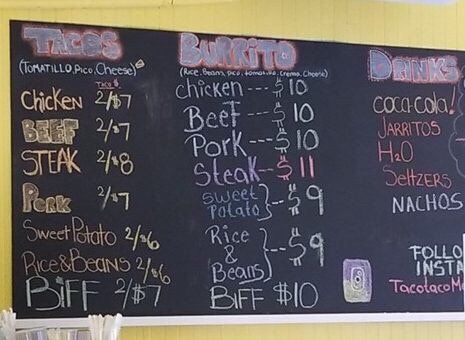 TACOS
(TOMATILLO, Pico, Cheese)
TACO $
Chicken 2/$7
BEEF 2/$7
STEAK 2/$8
PORK 2/$7
Sweet Potato 2/$6
Rice & Beans 2/$6
BIFF 2/$7
BURRITO
(Rice, Beans, pico, tomatillo, crema, Cheese)
chicken --- $10
Beef --- $10
Pork --- $10
Steak -- $11
Sweet Potato -- $9
Rice & Beans -- $9
BIFF $10
DRINKS
COCA-COLA
JARRITOS
H2O
Seltzers
NACHOS
FOLLO
INSTA
TacotacoM